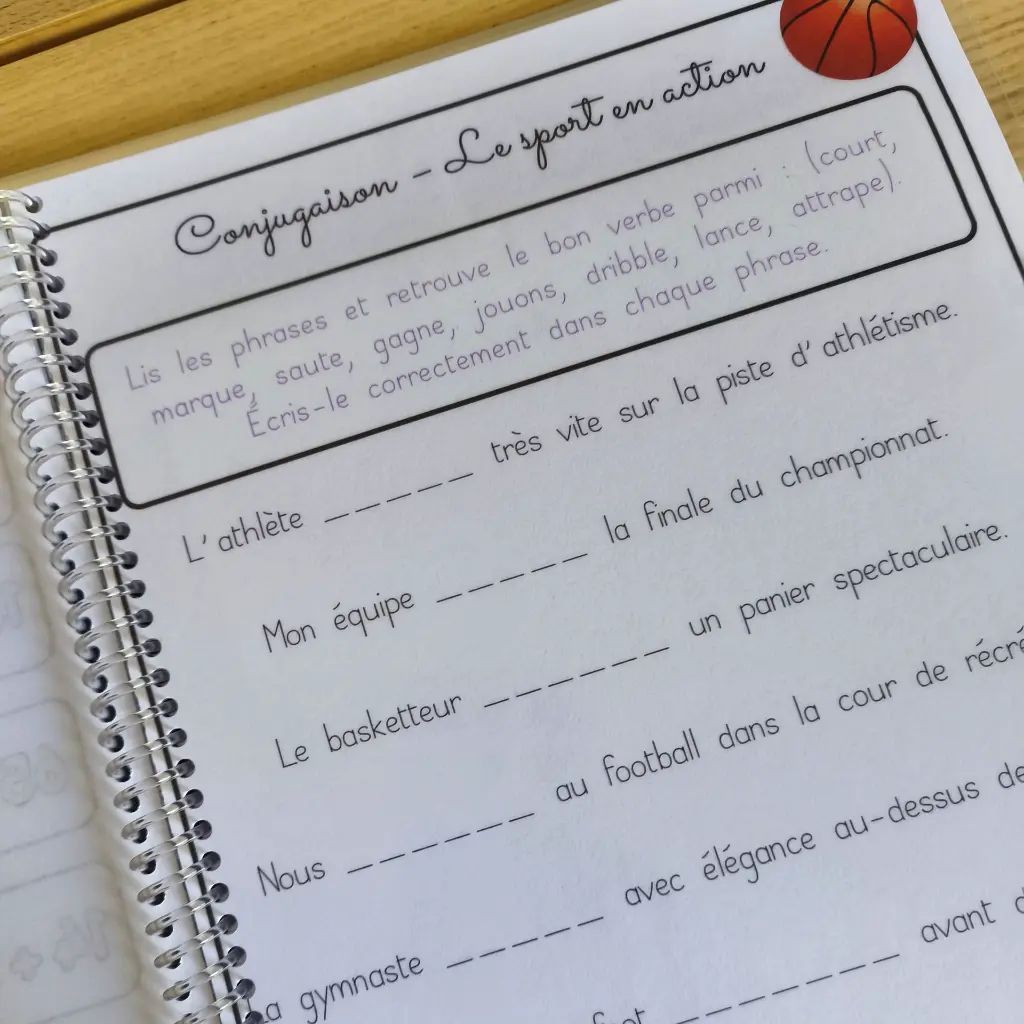 Conjugaison – Le sport en action
Lis les phrases et retrouve le bon verbe parmi : (court,
marque, saute, gagne, jouons, dribble, lance, attrape).
Écris-le correctement dans chaque phrase.
L' athlète _ _ _ _ _ très vite sur la piste d' athlétisme.
Mon équipe _ _ _ _ _ la finale du championnat.
Le basketteur _ _ _ _ _ _ un panier spectaculaire.
Nous _ _ _ _ _ _ au football dans la cour de récré
La gymnaste _ _ _ _ _ avec élégance au-dessus de
foot _ _ _ _ _ _ _ avant d